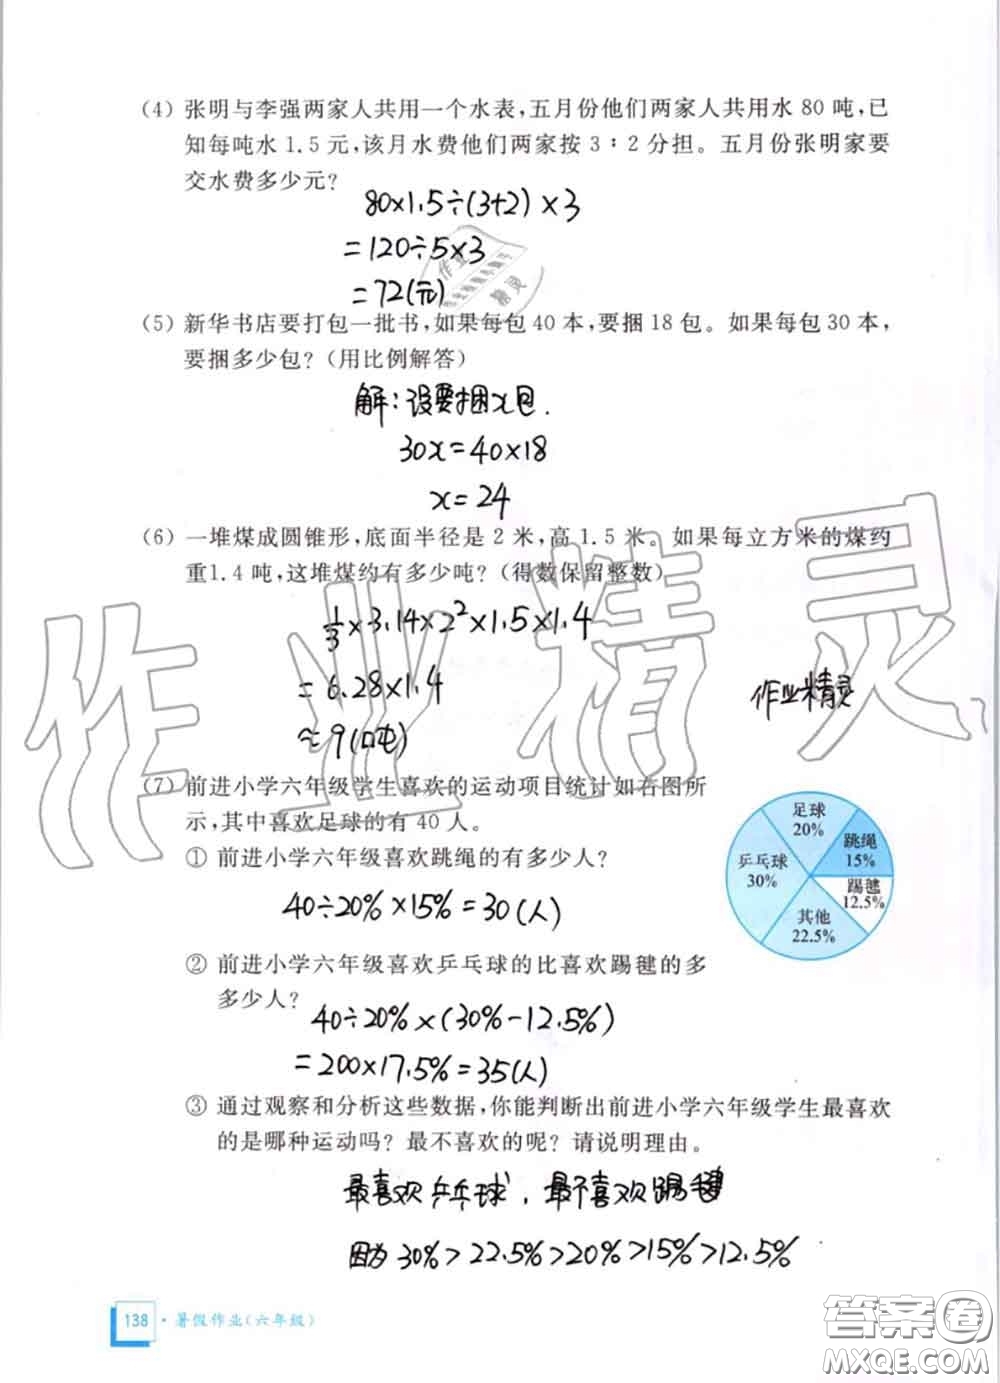 (4) 张明与李强两家人共用一个水表,五月份他们两家人共用水 80 吨,已
知每吨水 1.5 元,该月水费他们两家按 3∶2 分担。五月份张明家要
交水费多少元?
80×1.5÷(3+2)×3
=120÷5×3
=72(元)
(5) 新华书店要打包一批书,如果每包 40 本,要捆 18 包。如果每包 30 本,
要捆多少包?(用比例解答)
解:设要捆x包.
30x=40×18
x=24
(6) 一堆煤成圆锥形,底面半径是 2 米,高 1.5 米。如果每立方米的煤约
重1.4 吨,这堆煤约有多少吨?(得数保留整数)
1/3×3.14×2²×1.5×1.4
=6.28×1.4
≈9(吨)
作业精灵
作业精灵
(7) 前进小学六年级学生喜欢的运动项目统计如右图所
示,其中喜欢足球的有 40 人。
① 前进小学六年级喜欢跳绳的有多少人?
40÷20%×15%=30(人)
足球
20%
跳绳
15%
乒乓球
30%
踢毽
12.5%
其他
22.5%
② 前进小学六年级喜欢乒乓球的比喜欢踢毽的多
多少人?
40÷20%×(30%-12.5%)
=200×17.5%=35(人)
③ 通过观察和分析这些数据,你能判断出前进小学六年级学生最喜欢
的是哪种运动吗?最不喜欢的呢?请说明理由。
最喜欢乒乓球,最不喜欢踢毽
因为30%>22.5%>20%>15%>12.5%
138 · 暑假作业(六年级)
答案圈
MXQE.COM